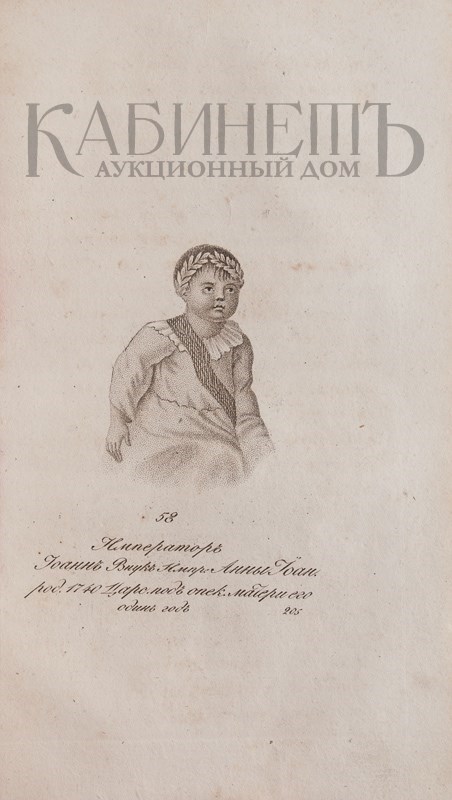 КАБИНЕТЪ
АУКЦИОННЫЙ ДОМ
58
Императоръ
Іоаннъ Внукъ Импр. Анны Іоан.
род. 1740 Царс. подъ опек. матери его
одинъ годъ 205